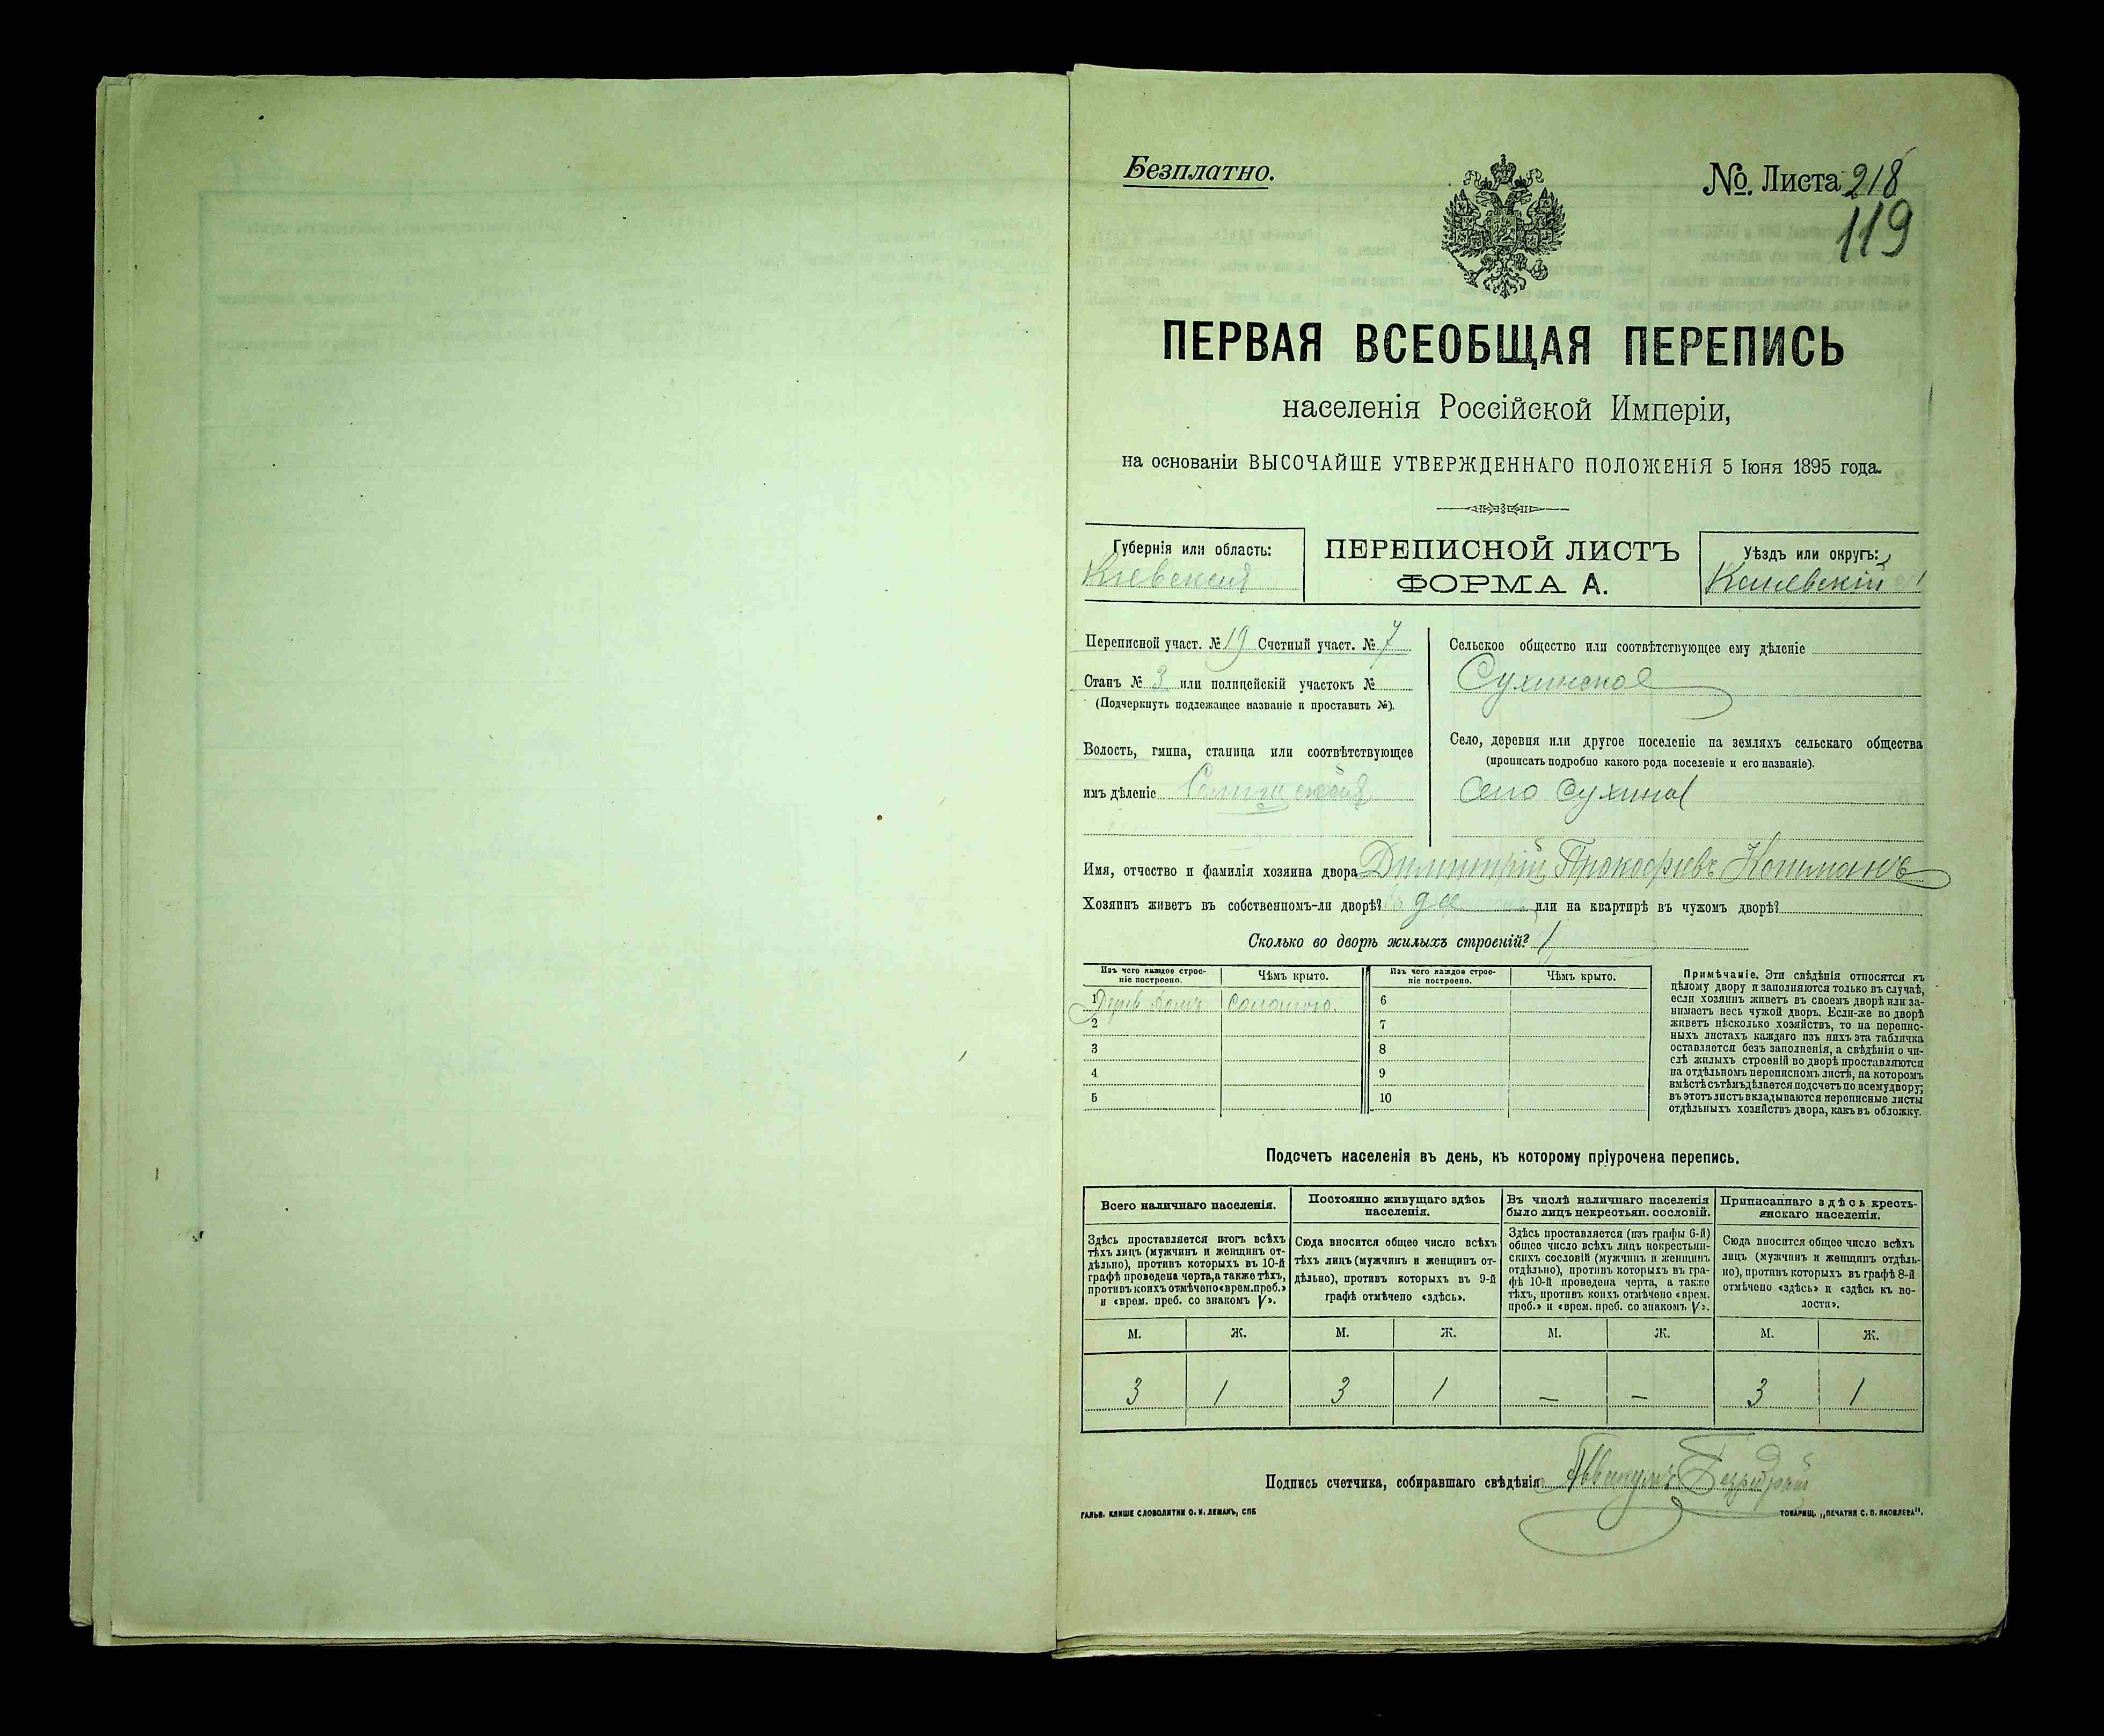 Безплатно.
№. Листа 218
119
ПЕРВАЯ ВСЕОБЩАЯ ПЕРЕПИСЬ
населенія Россійской Имперіи,
на основаніи ВЫСОЧАЙШЕ УТВЕРЖДЕННАГО ПОЛОЖЕНІЯ 5 Іюня 1895 года.
Губернія или область:
Кіевская
ПЕРЕПИСНОЙ ЛИСТЪ
ФОРМА А.
Уѣздъ или округъ:
Каневскій
Переписной участ. № 19 Счетный участ. № 7
Станъ № 3 или полицейскій участокъ №
(Подчеркнуть подлежащее названіе и проставить №).
Волость, гмина, станица или соотвѣтствующее
имъ дѣленіе
Сельское общество или соотвѣтствующее ему дѣленіе
Сухинское
Село, деревня или другое поселеніе на земляхъ сельскаго общества
(прописать подробно какого рода поселеніе и его названіе).
Село Сухина
Имя, отчество и фамилія хозяина двора Димитрій Прокофіевъ
Хозяинъ живетъ въ собственномъ-ли дворѣ? да или на квартирѣ въ чужомъ дворѣ?
Сколько во дворѣ жилыхъ строеній? 1
Изъ чего каждое строе-
ніе построено.
Чѣмъ крыто.
Изъ чего каждое строе-
ніе построено.
Чѣмъ крыто.
1 Дерев. Соломою. 6
2 7
3 8
4 9
5 10
Примѣчаніе. Эти свѣдѣнія относятся къ
цѣлому двору и заполняются только въ случаѣ,
если хозяинъ живетъ въ своемъ дворѣ или за-
нимаетъ весь чужой дворъ. Если-же во дворѣ
живетъ нѣсколько хозяйствъ, то на перепис-
ныхъ листахъ каждаго изъ нихъ эта табличка
оставляется безъ заполненія, а свѣдѣнія о чи-
слѣ жилыхъ строеній во дворѣ проставляются
на отдѣльномъ переписномъ листѣ, на которомъ
вмѣстѣ съ тѣмъ дѣлается подсчетъ по всему двору;
въ этотъ листъ вкладываются переписные листы
отдѣльныхъ хозяйствъ двора, какъ въ обложку.
Подсчетъ населенія въ день, къ которому пріурочена перепись.
Всего наличнаго населенія.
Здѣсь проставляется итогъ всѣхъ
тѣхъ лицъ (мужчинъ и женщинъ от-
дѣльно), противъ которыхъ въ 10-й
графѣ проведена черта, а также тѣхъ,
противъ коихъ отмѣчено «врем. преб.»
и «врем. преб. со знакомъ V».
Постоянно живущаго здѣсь
населенія.
Сюда вносится общее число всѣхъ
тѣхъ лицъ (мужчинъ и женщинъ от-
дѣльно), противъ которыхъ въ 9-й
графѣ отмѣчено «здѣсь».
Въ числѣ наличнаго населенія
было лицъ некрестьян. сословій.
Здѣсь проставляется (изъ графы 6-й)
общее число всѣхъ лицъ некрестьян-
скихъ сословій (мужчинъ и женщинъ
отдѣльно), противъ которыхъ въ гра-
фѣ 10-й проведена черта, а также
тѣхъ, противъ коихъ отмѣчено «врем.
преб.» и «врем. преб. со знакомъ V».
Приписаннаго здѣсь кресть-
янскаго населенія.
Сюда вносится общее число всѣхъ
лицъ (мужчинъ и женщинъ отдѣль-
но), противъ которыхъ въ графѣ 8-й
отмѣчено «здѣсь» и «здѣсь къ во-
лости».
М. Ж. М. Ж. М. Ж. М. Ж.
3 1 3 1 — — 3 1
Подпись счетчика, собиравшаго свѣдѣнія
ГАЛЬВ. КЛИШЕ СЛОВОЛИТНИ О. И. ЛЕМАНЪ, СПБ
ТОВАРИЩ. „ПЕЧАТНЯ С. П. ЯКОВЛЕВА".